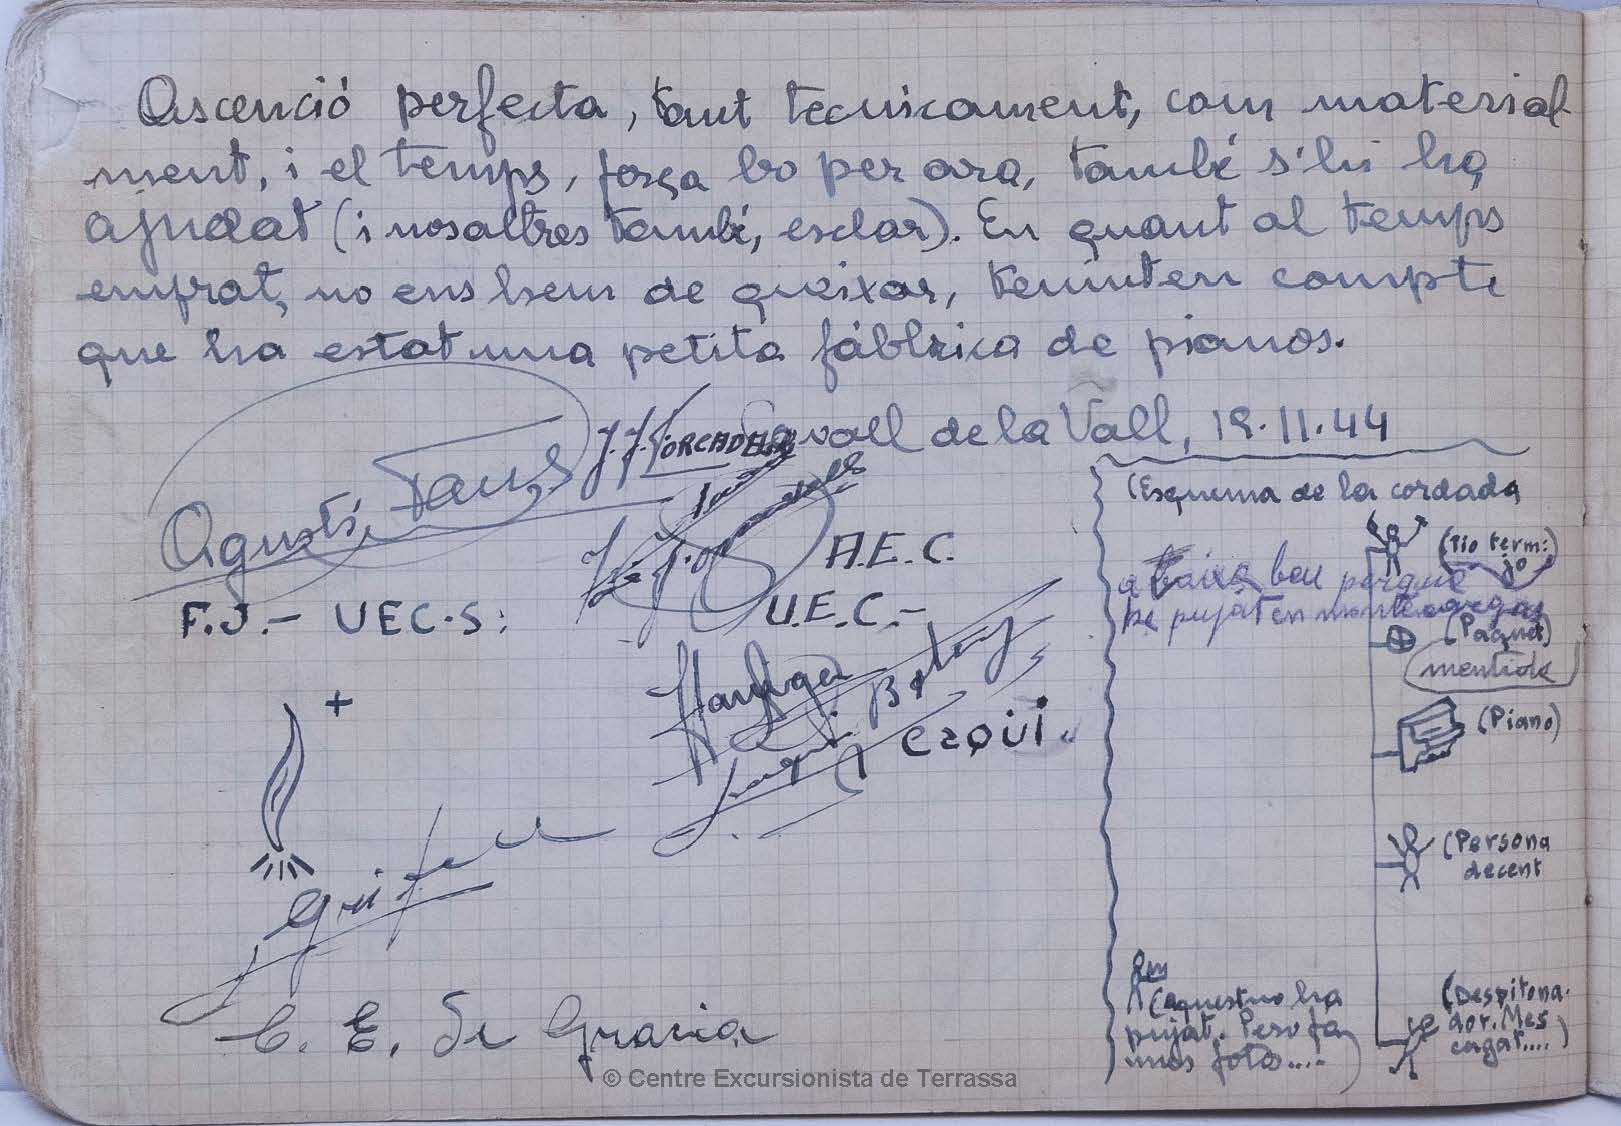 Ascenció perfecta, tant tecnicament, com material
ment, i el temps, força bo per ara, també s'hi ha
ajudat (i nosaltres també, esclar). En quant al temps
emprat, no ens hem de queixar, tenint en compte
que ha estat una petita fábbrica de pianos.
Cavall de la Vall, 19·11·44
Agustí Faus
J. J. FORCADELL
A.E.C.
F.J.- UEC·S:
U.E.C.-
EZQÜI.
C. E. De Gracia
(Esquema de la cordada
(Tio termi:
jo)
a baixa bou perquè
he pujat en montecargas
(Paquet)
mentida
(Piano)
(Persona
decent
(aquest no ha
pujat. Pero fa
unes fotos....)
(Despitona-
dor. Mes
cagat....)
© Centre Excursionista de Terrassa